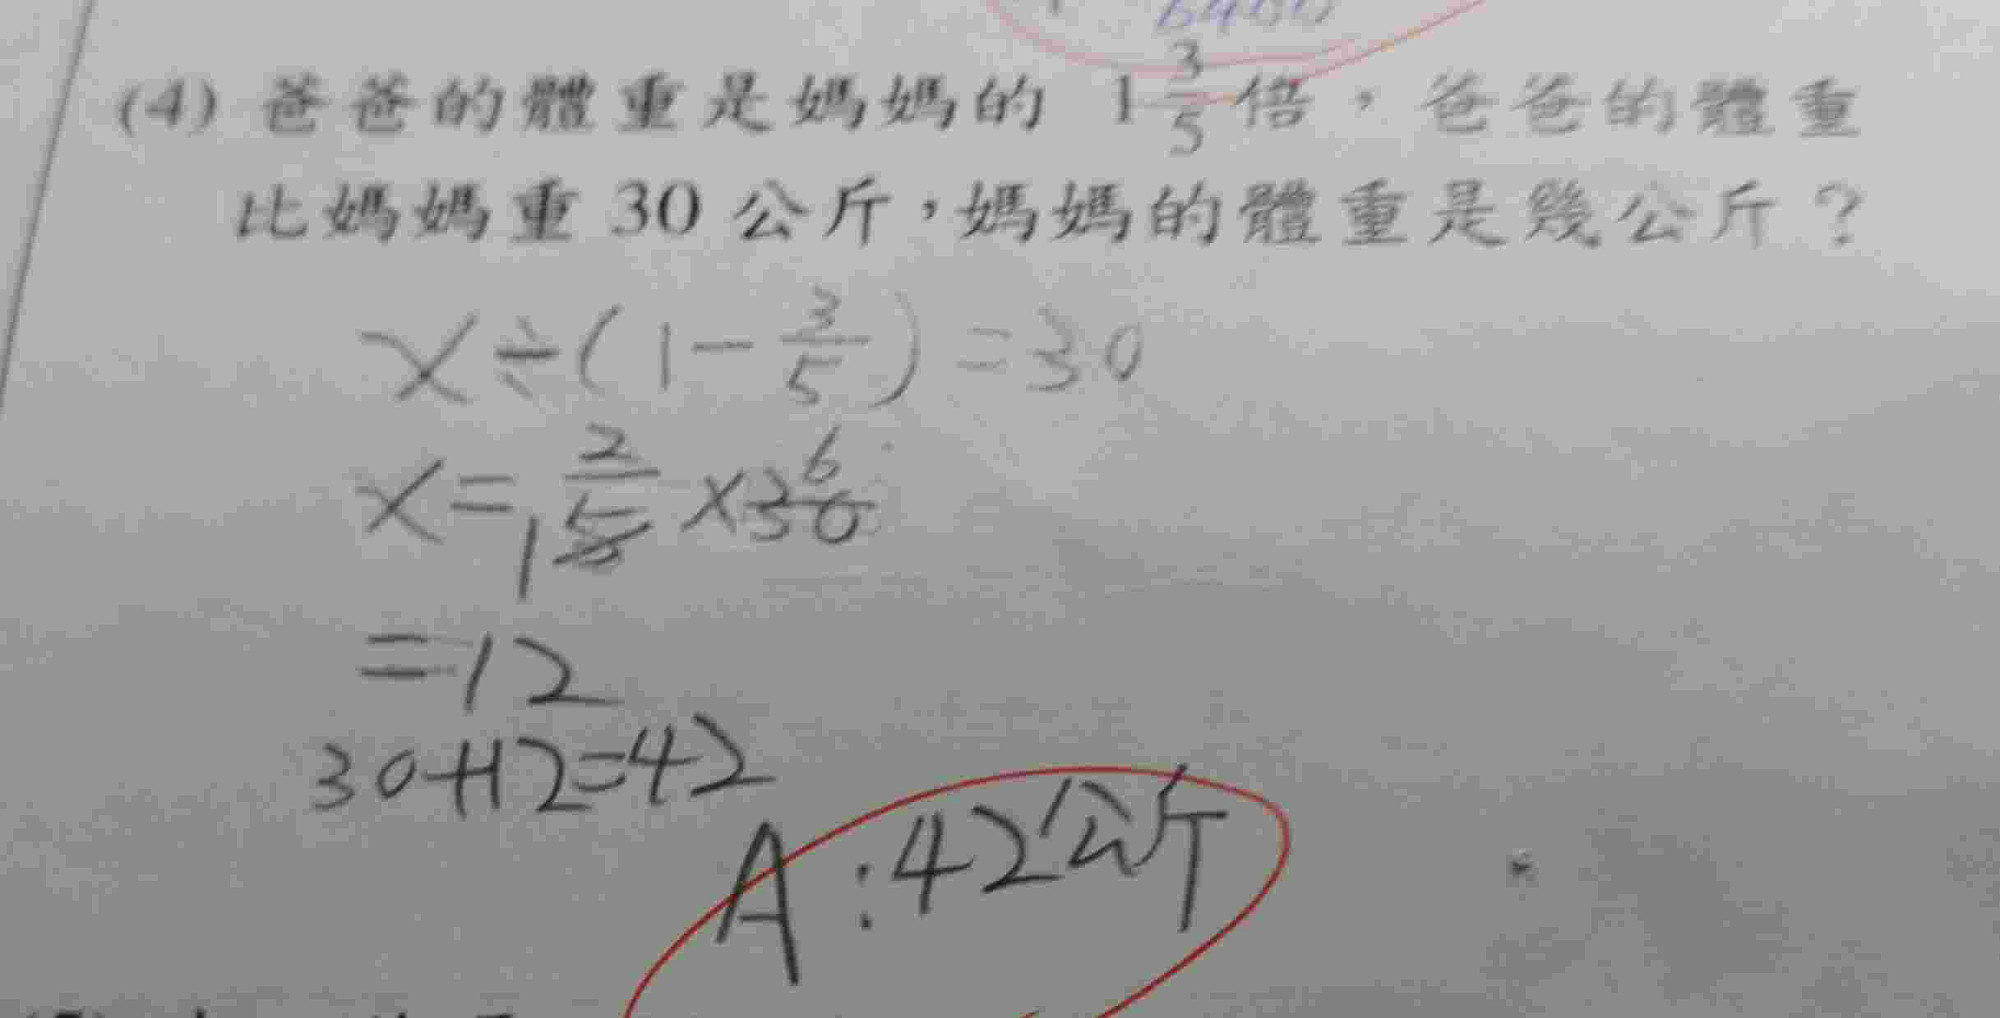 (4) 爸爸的體重是媽媽的 1 3/5 倍，爸爸的體重
比媽媽重 30 公斤，媽媽的體重是幾公斤？
x÷(1-3/5)=30
x=2/5×30
1 6
=12
30+12=42
A:42公斤